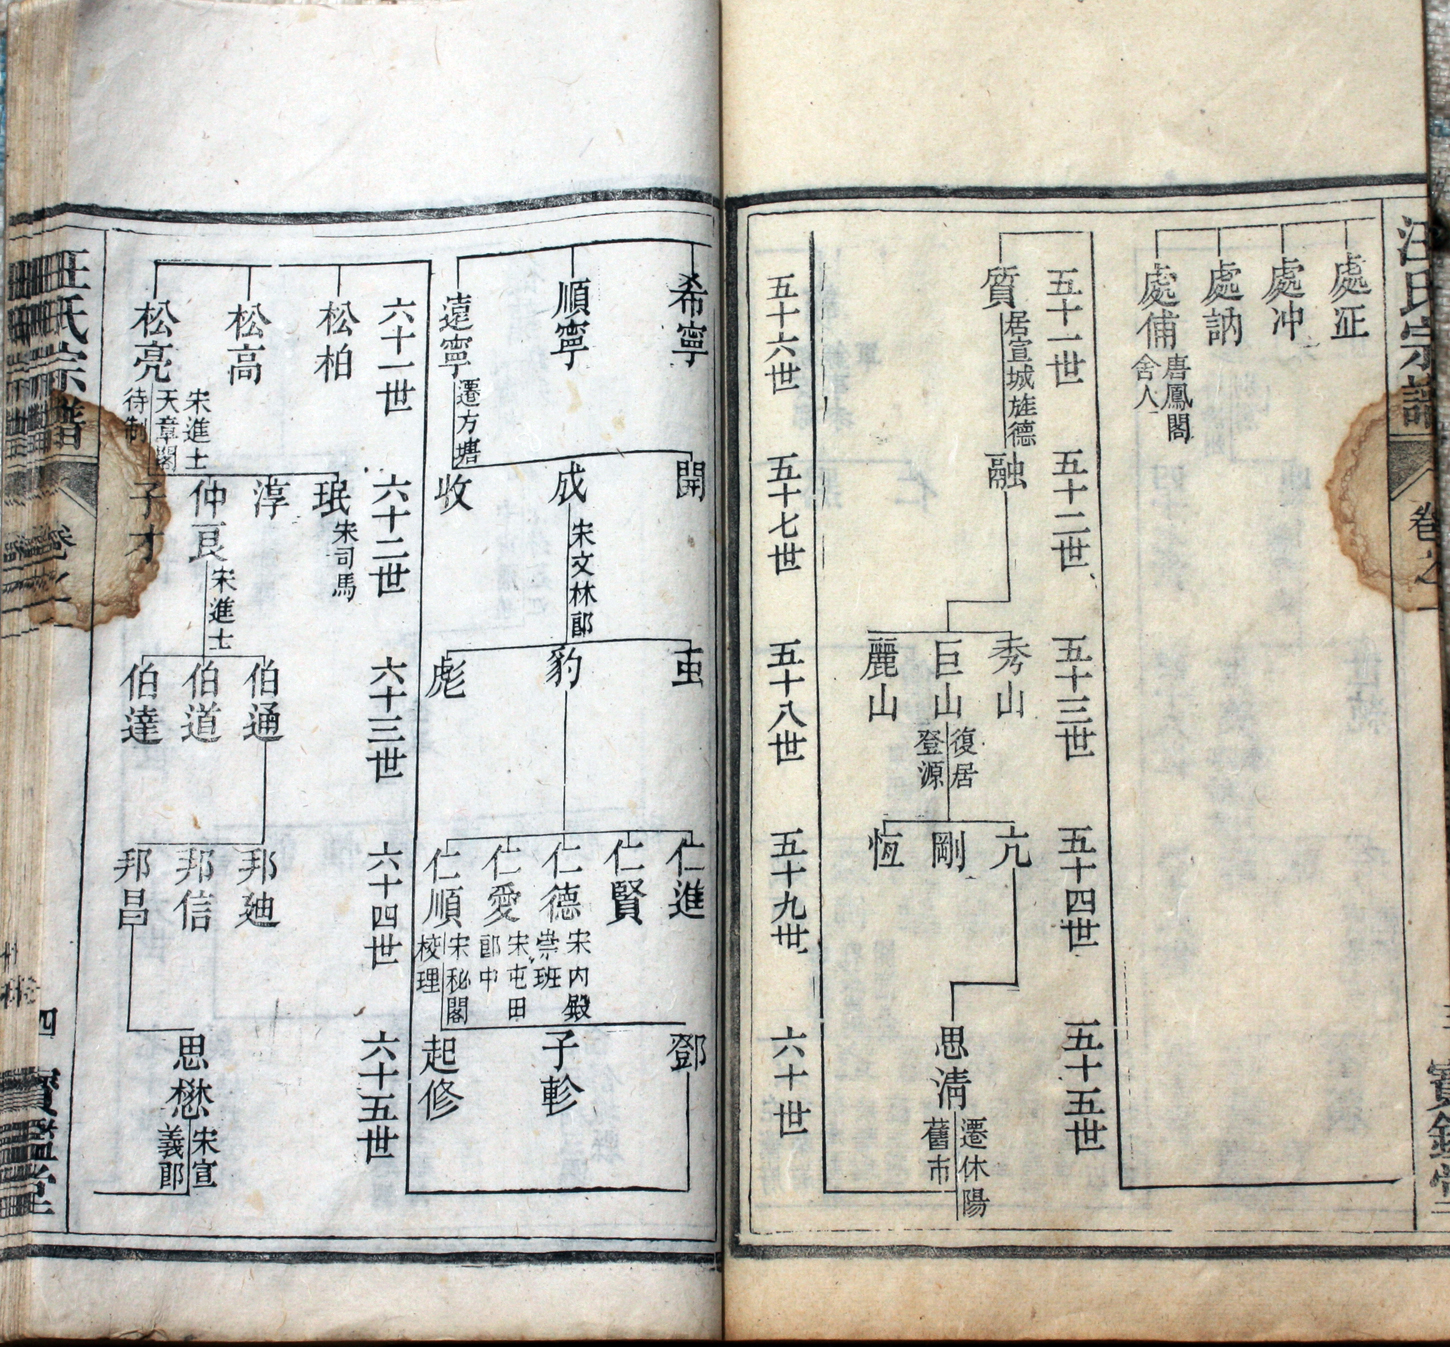 汪氏宗譜
卷之一
處冲
處訥
處俌
唐鳳閣
舍人
五十一世
五十二世
五十三世
五十四世
五十五世
質
居宣城旌德
融
秀山
巨山
復居
登源
麗山
亢
剛
恆
思淸
遷休陽
舊市
五十六世
五十七世
五十八世
五十九世
六十世
希寧
順寧
遠寧
遷方塘
開
成
宋文林郎
收
豹
彪
仁進
仁賢
仁德
宋內殿
崇班
仁愛
宋屯田
郎中
仁順
宋秘閣
校理
鄧
子軫
起修
六十一世
六十二世
六十三世
六十四世
六十五世
松柏
松高
松亮
宋進士
天章閣
待制
珉
宋司馬
淳
仲良
宋進士
子才
伯通
伯道
伯達
邦廸
邦信
邦昌
思懋
宋宣
義郎
汪氏宗譜
卷之一
四
寶鑑堂